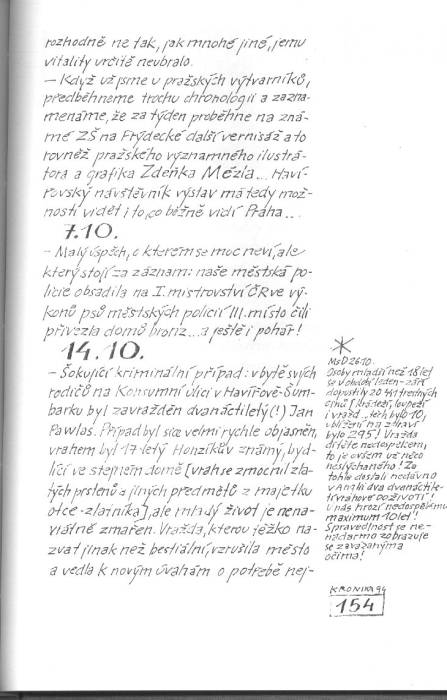 rozhodně ne tak, jak mnohé jiné, jemu
vitality určitě neubralo.
– Když už jsme u pražských výtvarníků,
předběhneme trochu chronologii a zazna-
menáme, že za týden proběhne na zná-
mé ZŠ na Frýdecké další vernisáž a to
rovněž pražského významného ilustrá-
tora a grafika Zdeňka Mézla... Haví-
řovský návštěvník výstav má tedy mož-
nost vidět i to, co běžně vidí Praha...
7.10.
– Malý úspěch, o kterém se moc neví, ale
který stojí za záznam: naše městská po-
licie obsadila na I. mistrovství ČR ve vý-
konů psů městských policií III. místo čili
přivezla domů bronz...a ještě i pohár!
14.10.
– Šokující kriminální případ: v bytě svých
rodičů na Konzumní ulici v Havířově-Šum-
barku byl zavražděn dvanáctiletý (!) Jan
Pawlas. Případ byl sice velmi rychle objasněn,
vrahem byl 17 letý Honzíkův známý, byd-
lící ve stejném domě [vrah se zmocnil zla-
tých prstenů a jiných předmětů z majetku
otce-zlatníka], ale mladý život je nená-
vratně zmařen. Vražda, kterou těžko na-
zvat jinak než bestiální, vzrušila město
a vedla k novým úvahám o potřebě nej-
*
MsD 26.10.
Osoby mladší než 18 let
se v období leden - září
dopustily 20 441 trestných
činů [krádeží, loupeží
i vražd... těch bylo 10,
ublížení na zdraví
bylo 295! Vražda
dítěte nedospělcem,
to je ovšem už něco
neslýchaného! Za
tohle dostali nedávno
v Anglii dva dvanácti-
letí vrahové doživotí!
U nás hrozí nedospělému
maximum 10 let!
Spravedlnost se ne-
nadarmo zobrazuje
se zavázanýma
očima!
KRONIKA 94
154